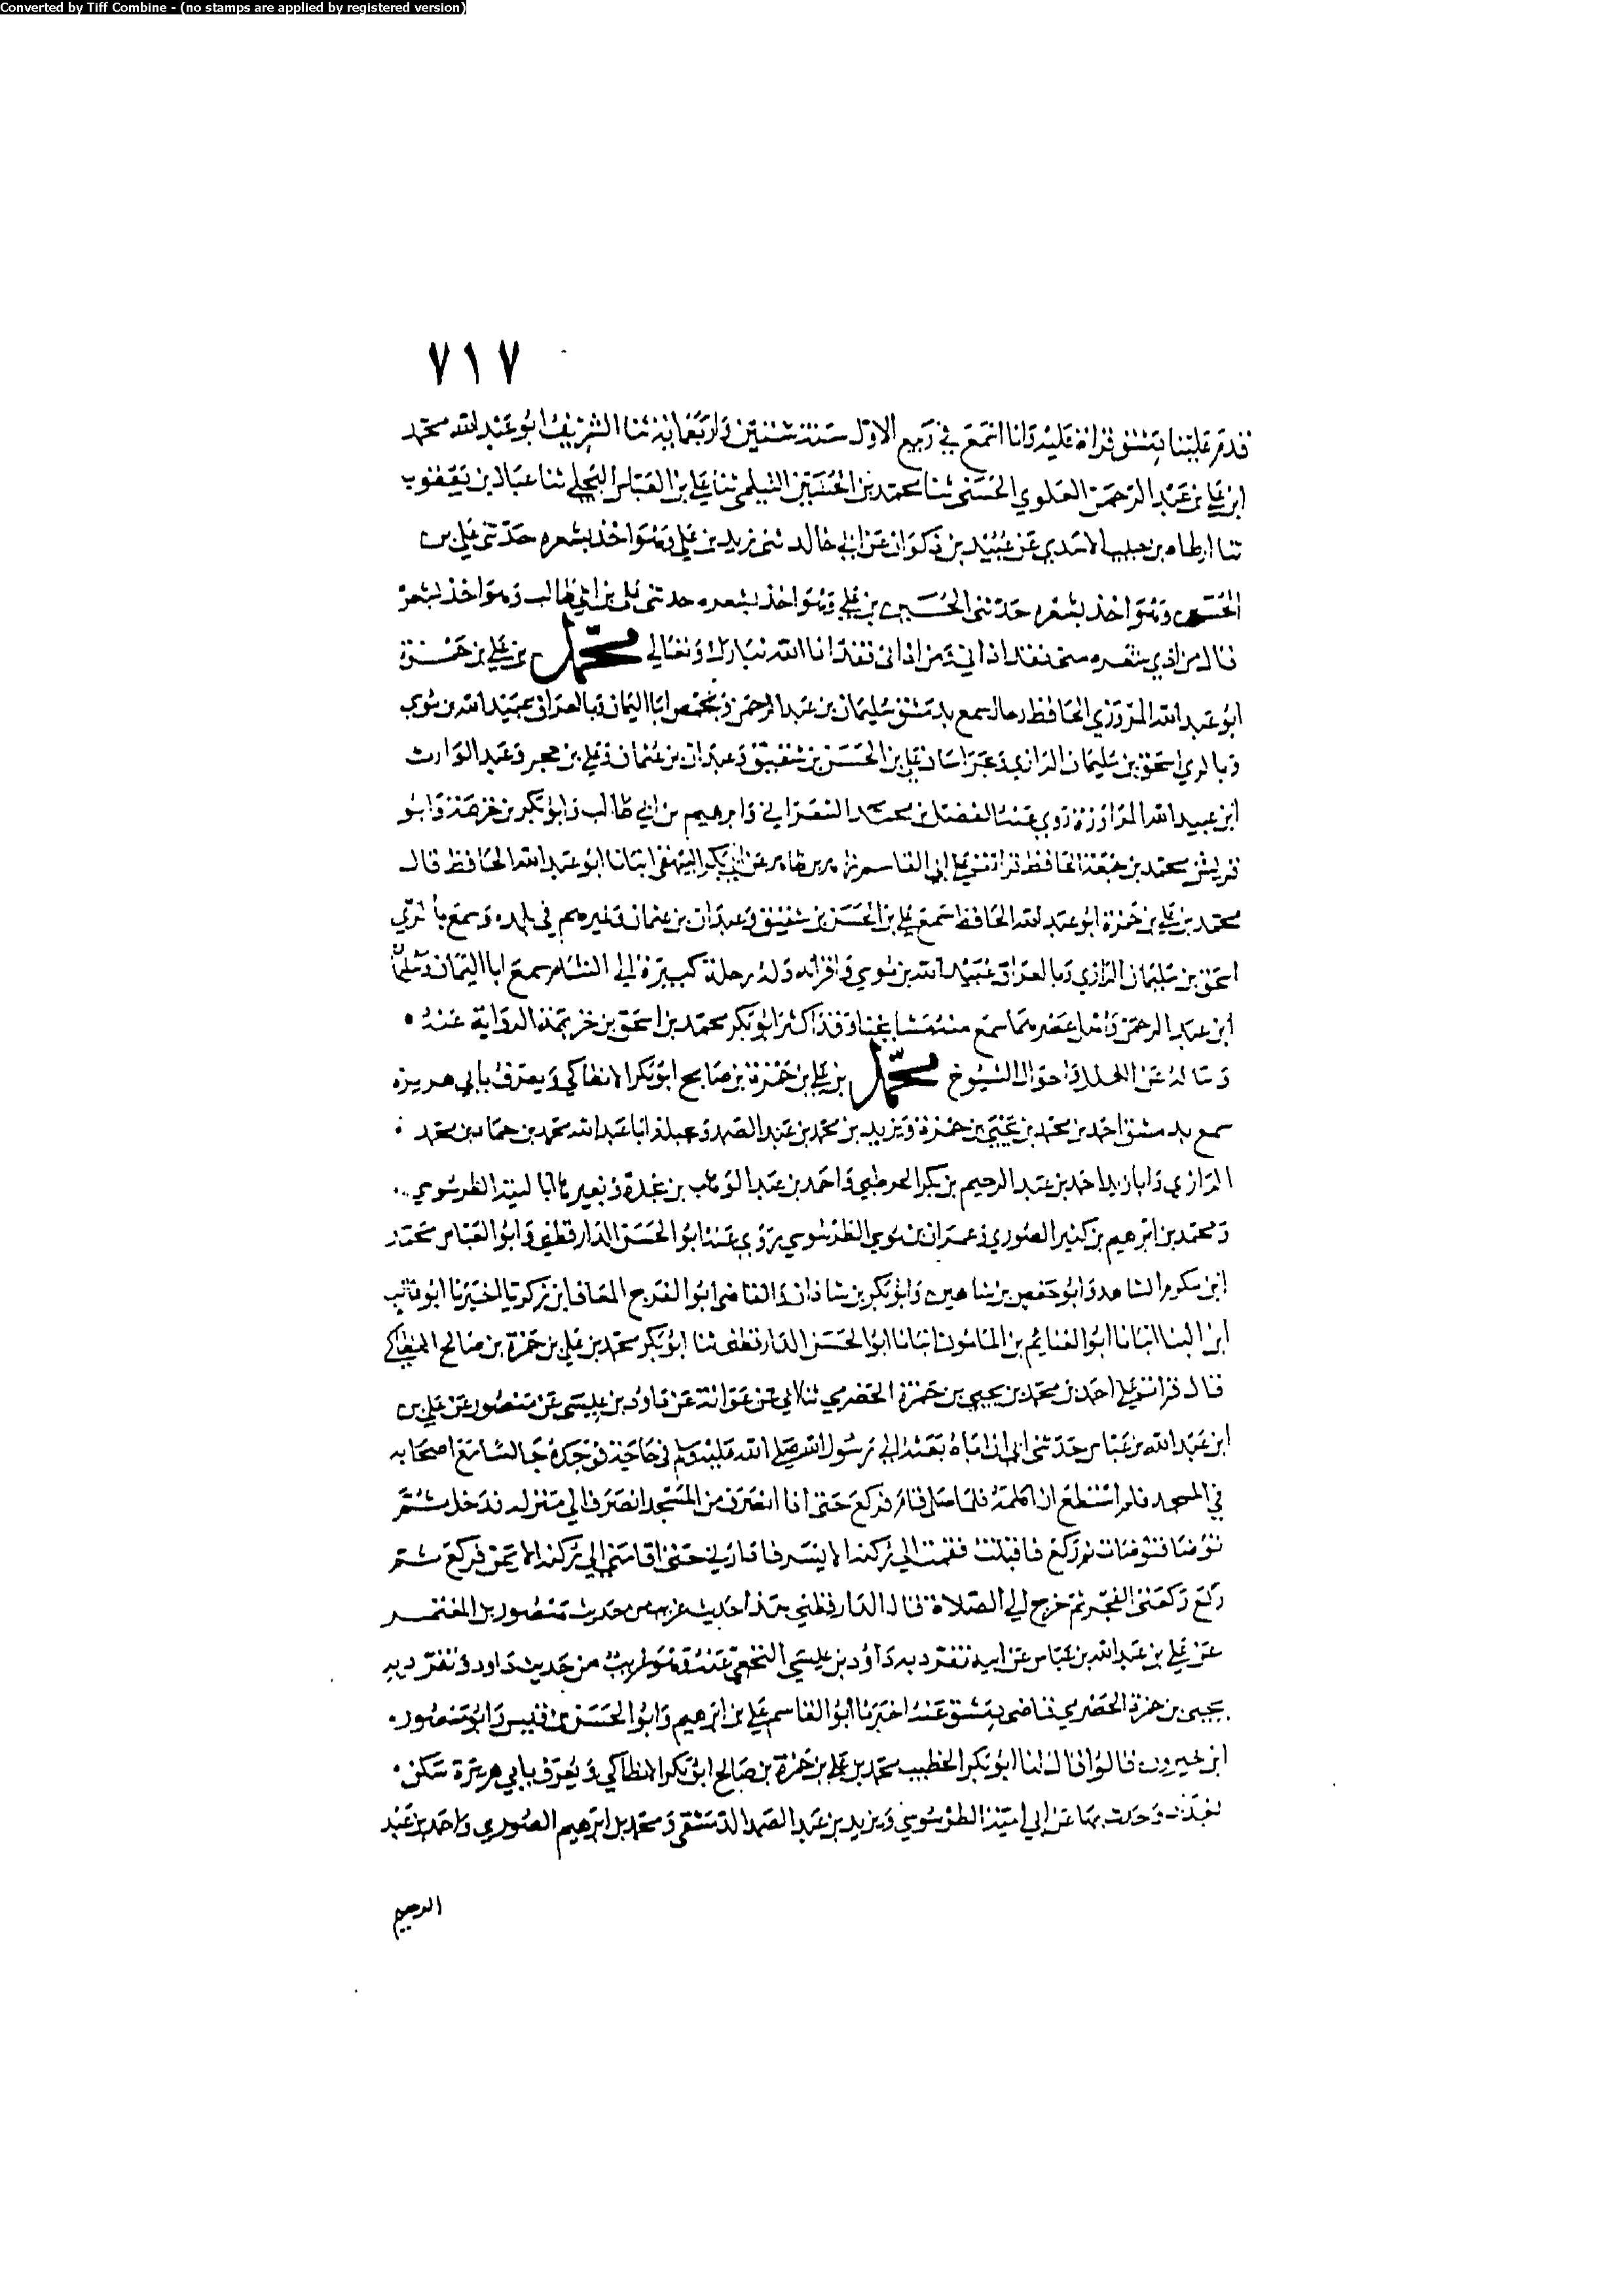 Converted by Tiff Combine - (no stamps are applied by registered version)
٧١٧
قدم علينا دمشق قراة عليه وانا اسمع في ربيع الاول سنة ستين واربعماية ثنا الشريف ابو عبد الله محمد
ابن علي بن عبد الرحمن العلوي الحسني ثنا محمد بن الحسين التيملي ثنا علي بن العباس البجلي ثنا عباد بن يعقوب
ثنا ارطاه بن حبيب الاسدي عن عبيد بن ذكوان عن ابي خالد ثنى زيد بن علي وهو اخذ بشعره حدثنى علي بن
الحسين وهو اخذ بشعره حدثنى الحسين بن علي وهو اخذ بشعره حدثنى علي بن ابي طالب وهو اخذ بشعره
قال من اذي شعره منى فقد اذاني ومن اذاني فقد اذا الله تبارك وتعالى محمد بن علي بن حمزة
ابو عبد الله المروزي الحافظ رحال سمع بدمشق سليمان بن عبد الرحمن وبحمص ابا اليمان وبالعراق عبيد الله بن موسى
وبالري اسحق بن سليمان الرازي وبخراسان علي بن الحسن بن شقيق وعبدان بن عثمان وعلي بن حجر وعبد الوارث
ابن عبيد الله المراوزة روي عنه الفضل بن محمد الشعراني وابرهيم بن ابي طالب وابو بكر بن خزيمة وابو
قريش محمد بن جمعة الحافظ قرات على ابي القاسم زاهر بن طاهر عن ابي بكر البيهقي انبانا ابو عبد الله الحافظ قال
محمد بن علي بن حمزة ابو عبد الله الحافظ سمع علي بن الحسن بن شقيق وعبدان بن عثمان وغيرهم في بلده وسمع بالري
اسحق بن سليمان الرازي وبالعراق عبيد الله بن موسى واقرانه وله رحلة كبيرة الى الشام سمع ابا اليمان وسليمان
ابن عبد الرحمن واهل عصرهما سمع منه مشايخنا وقد اكثر ابو بكر محمد بن اسحق بن خزيمة الرواية عنه
وساله عن العلل واحوال الشيوخ محمد بن علي بن حمزة بن صالح ابو بكر الانطاكي ويعرف بابي هريرة
سمع بدمشق احمد بن محمد بن يحيى بن حمزة ويزيد بن محمد بن عبد الصمد وبجبلة ابا عبد الله محمد بن حماد بن محمد
الرازي وابا زيد احمد بن عبد الرحيم بن بكر الحوطي واحمد بن عبد الوهاب بن نجدة وبغيرها ابا امية الطرسوسي
ومحمد بن ابرهيم بن كثير الصوري وعمران بن موسى الطرسوسي روي عنه ابو الحسن الدارقطني وابو العباس محمد
ابن مكرم الشاهد وابو حفص بن شاهين وابو بكر بن شاذان والقاضي ابو الفرج المعافا بن زكريا اخبرنا ابو غالب
ابن البنا انبانا ابو الغنايم بن المامون انبانا ابو الحسن الدارقطني ثنا ابو بكر محمد بن علي بن حمزة بن صالح الانطاكي
قال قرات على احمد بن محمد بن يحيى بن حمزة الحضرمي ثنا ابي عن عوانة عن داود بن عيسى عن منصور عن علي بن
ابن عبد الله بن عباس حدثنى ابى ان اباه بعثه الى رسول الله صلى الله عليه وسلم في حاجة فوجده جالسا مع اصحابه
في المسجد فلم استطع ان اكلمه فلما صلى قام فركع حتى اذا انصرف من المسجد انصرف الى منزله فدخل ثم
توضا فتوضات ثم ركع فاقبلت فقمت الى ركنه الايسر فادارني حتى اقامني الى ركنه الايمن فركع ثم
ركع ركعتى الفجر ثم خرج الى الصلاة قال الدارقطني هذا حديث غريب من حديث منصور بن المعتمر
عن علي بن عبد الله بن عباس عن ابيه تفرد به داود بن عيسى النخعي عنه وهو غريب من حديث داود تفرد به
يحيى بن حمزة الحضرمي قاضى دمشق عنه اخبرنا ابو القاسم علي بن ابرهيم وابو الحسن بن قبيس وابو منصور
ابن خيرون قالوا قال لنا ابو بكر الخطيب محمد بن علي بن حمزة بن صالح ابو بكر الانطاكي ويعرف بابي هريرة سكن
بغداد وحدث بها عن ابي امية الطرسوسي ويزيد بن عبد الصمد الدمشقي ومحمد بن ابرهيم الصوري واحمد بن عبد
الرحيم